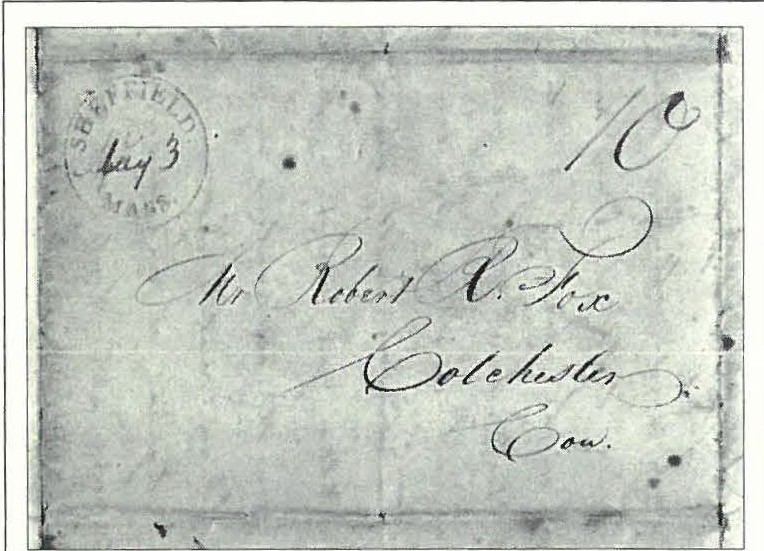 SHEFFIELD.
3
MASS.
10
Mr Robert R. Fox
Colchester
Con.